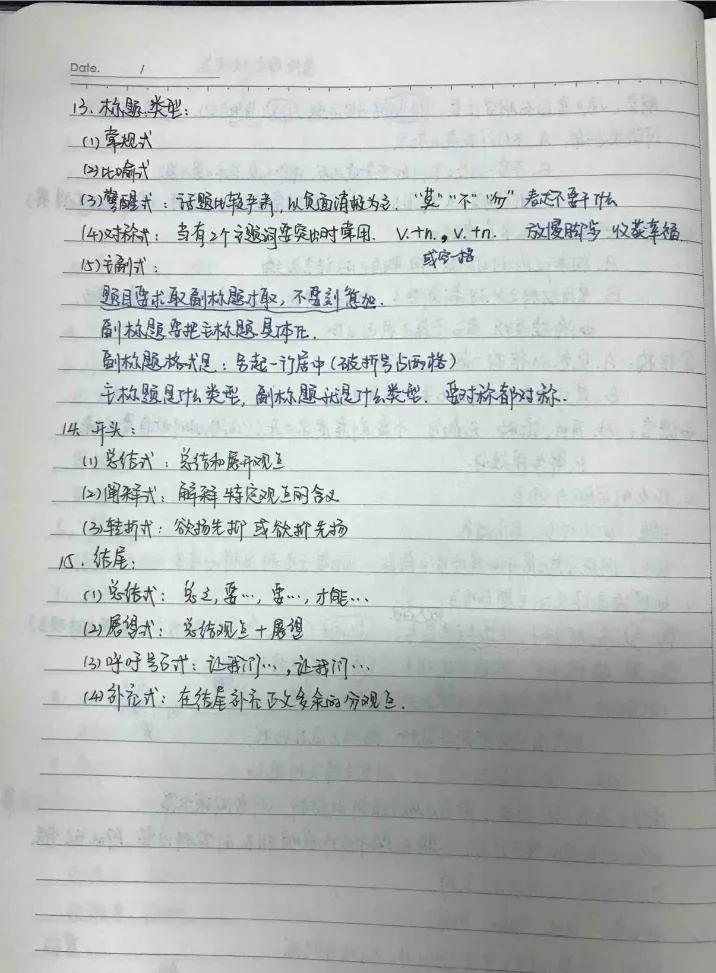 Date. /
13. 标题类型：
(1) 常规式
(2) 比喻式
(3) 警醒式：话题比较严肃，以负面消极为主. "莫""不""勿" 表达不要干什么
(4) 对称式：当有2个主题词要突出时常用. v.+n.，v.+n. 放慢脚步 收获幸福
或空一格
(5) 主副式：
题目要求取副标题才取，不要刻意加.
副标题要把主标题具体化.
副标题格式是：另起一行居中(破折号占两格)
主标题是什么类型，副标题就是什么类型. 要对称都对称.
14. 开头：
(1) 总结式：总结和展开观点
(2) 阐释式：解释特定观点的含义
(3) 转折式：欲扬先抑 或 欲抑先扬
15. 结尾：
(1) 总结式：总之，要…，要…，才能…
(2) 展望式：总结观点 + 展望
(3) 呼吁号召式：让我们…，让我们…
(4) 补充式：在结尾补充正文多余的分观点.